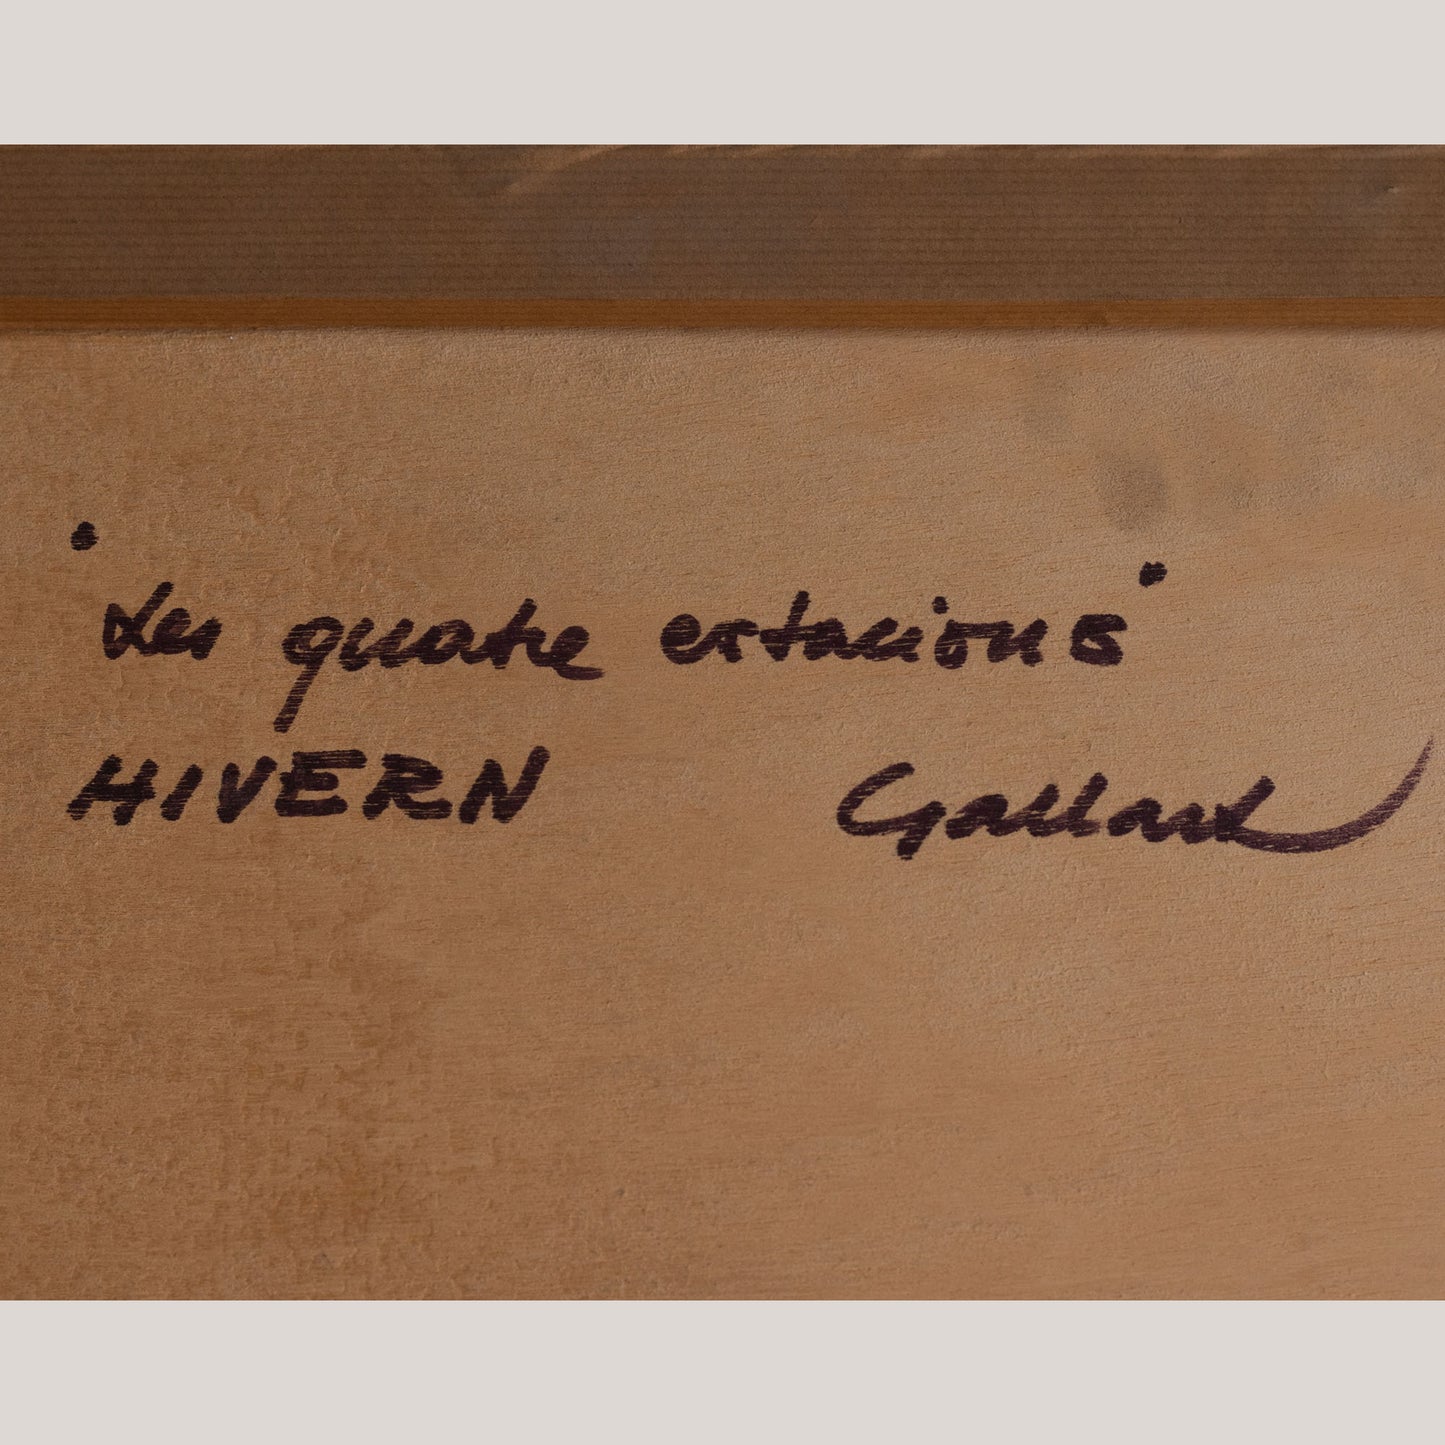 "Les quatre estacions"
HIVERN Gallard